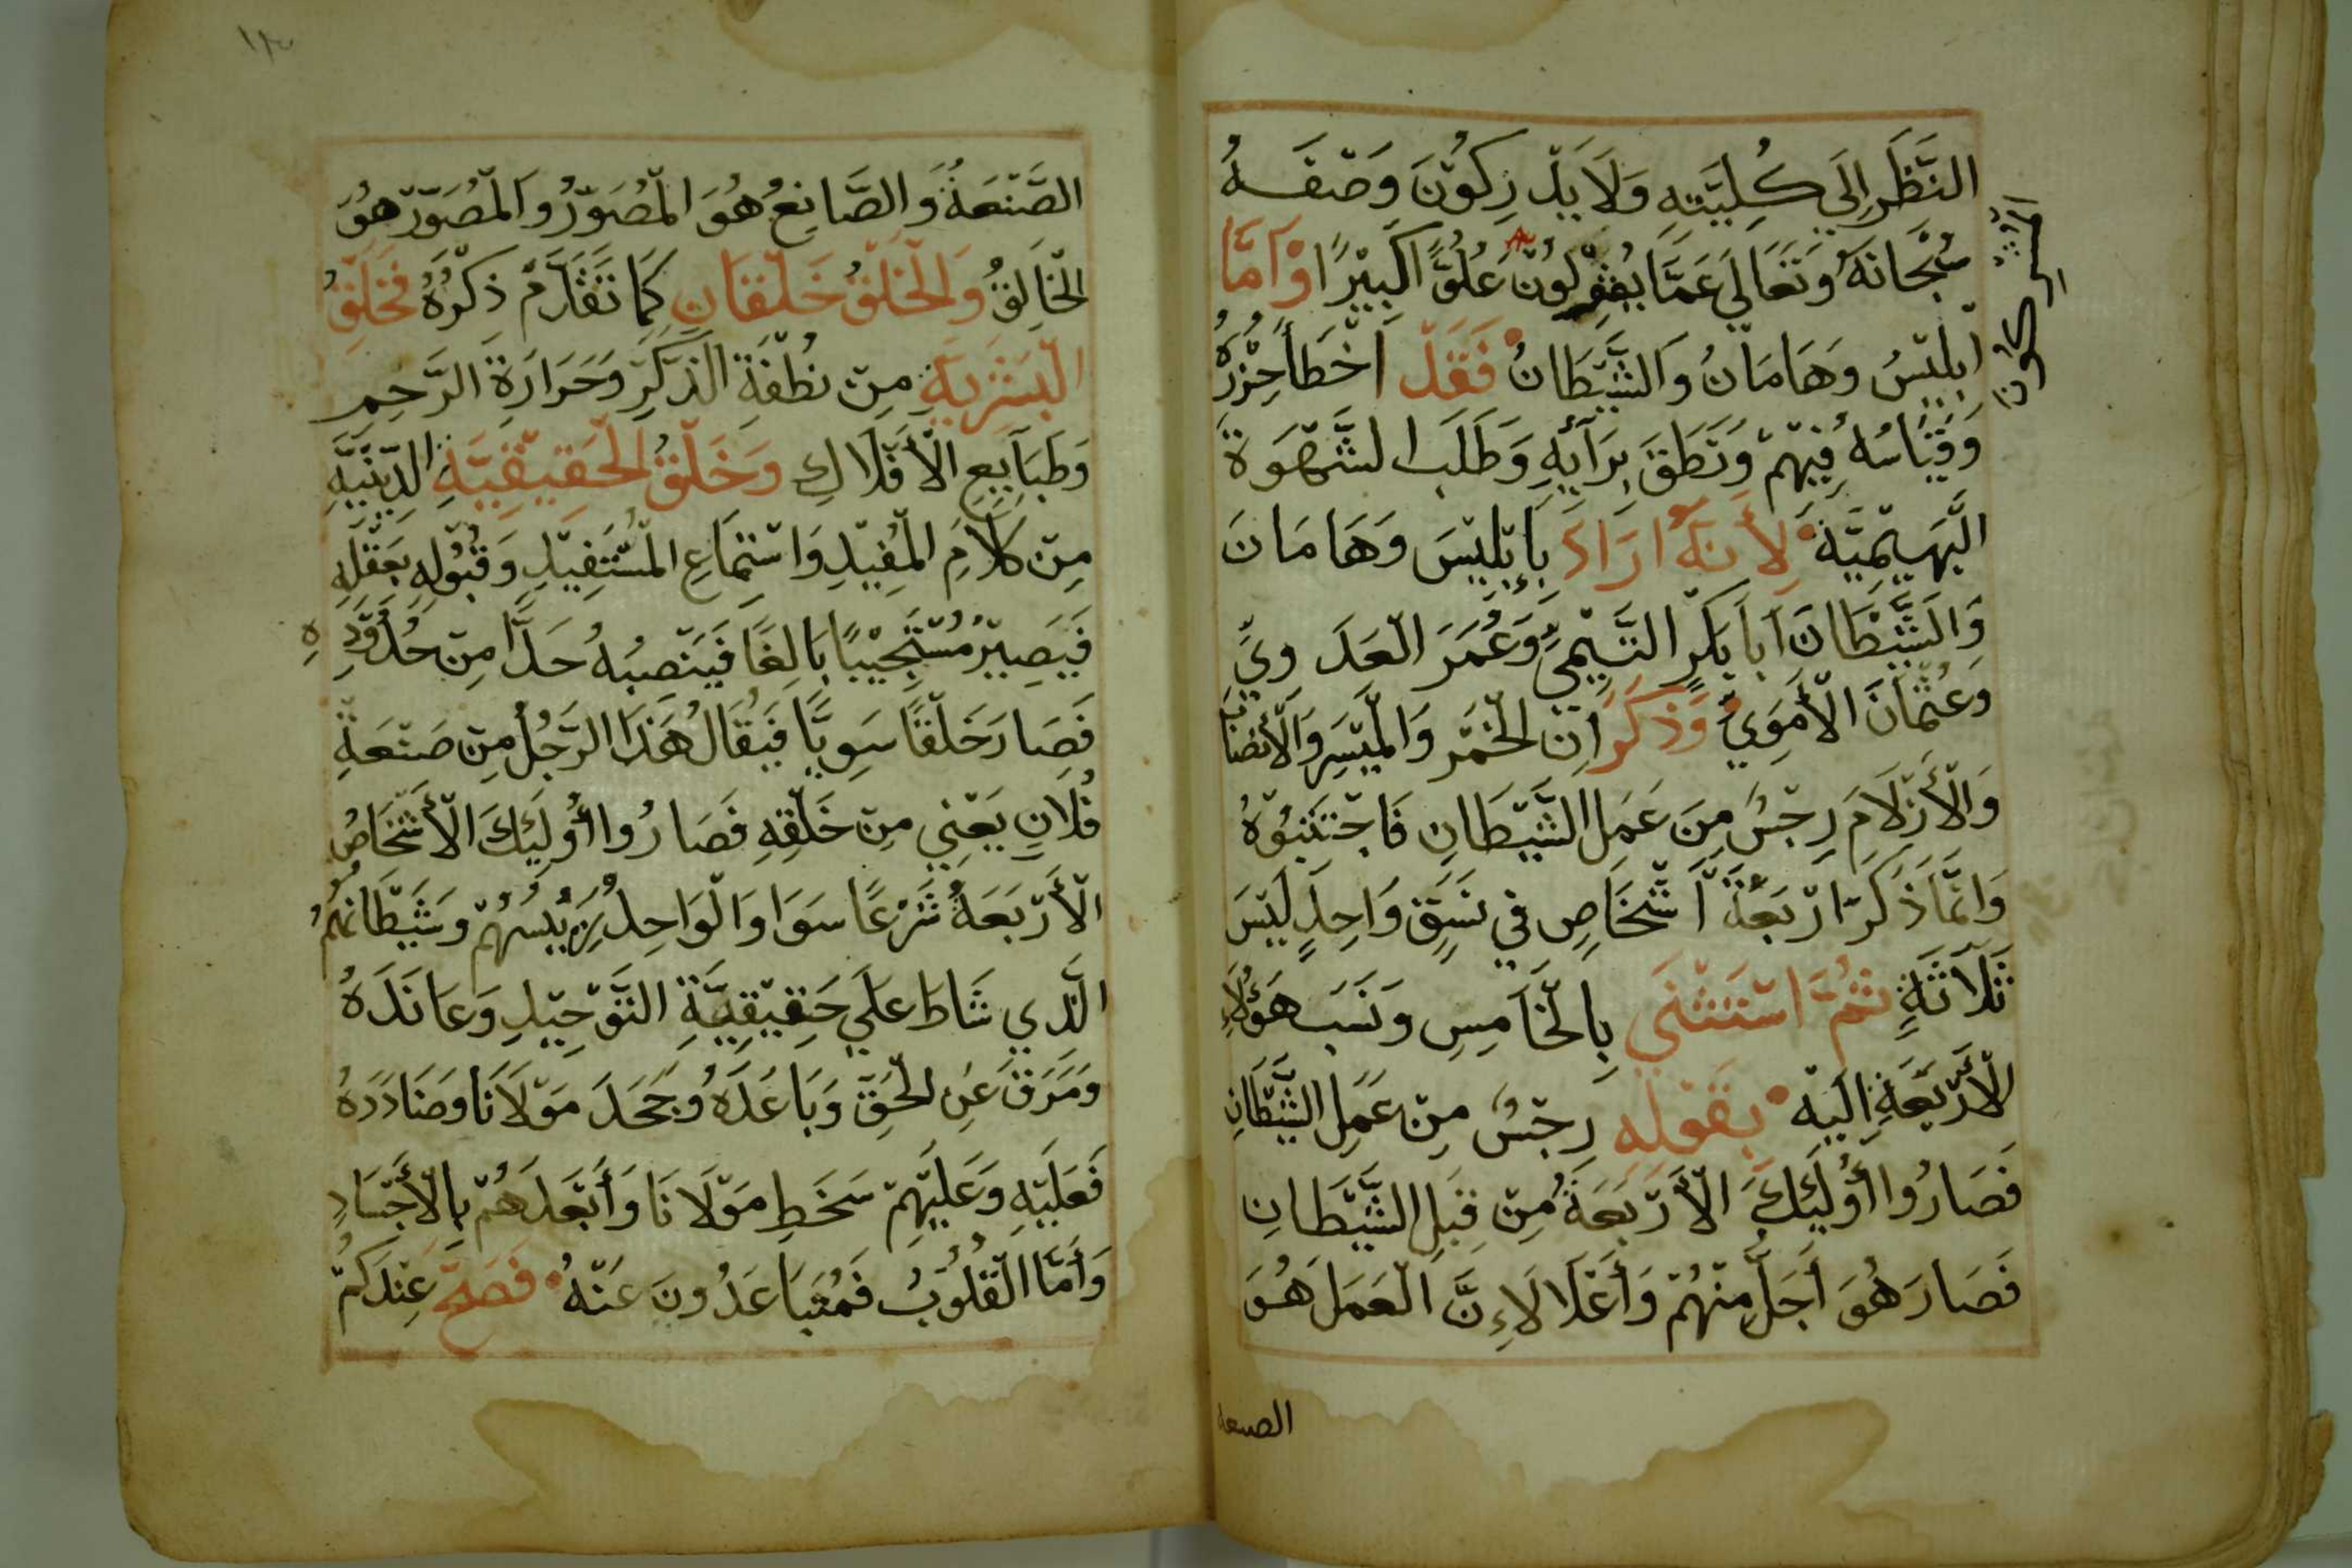 النَّظَرِ إِلَي كُلِيَّتِهِ وَلَا يَدْرِكُوْنَ وَصْفَهُ
سُبْحَانَهُ وَتَعَالَي عَمَّا يَقُوْلُوْنَ عُلُوًّا كَبِيْرًا وَأَمَّا
المشركون
ابْلِيْسُ وَهَامَانُ وَالشَّيْطَانُ فَقَدْ اخْطَأَ حِزْرُهُ
وَقِيَاسُهُ فِيْهِمْ وَنَطَقَ بِرَأيِهِ وَطَلَبَ الشَّهْوَةَ
الْبَهِيْمِيَّةَ لِأَنَّهُ ارَادَ بِإِبْلِيْسَ وَهَامَانَ
وَالشَّيْطَانَ ابَا بَكْرٍ التَّيْمِيِّ وَعُمَرَ الْعَدَوِيِّ
وَعُثْمَانَ الْأُمَوِيِّ وَذَكَرَ انَ الْخَمْر وَالْمَيْسِر وَالْأَنْصَاب
وَالْأَزْلَامَ رِجْسٌ مِنَ عَمَلِ الشَّيْطَانِ فَاجْتَنِبُوْهُ
وَانَّمَا ذَكَرَ ارْبَعَةَ أَشْخَاصٍ فِي نَسَقٍ وَاحِدٍ لَيْسَ
ثَلَاثَةٍ ثُمَّ اسْتَثْنَي بِالْخَامِسِ وَنَسَبَ هَؤُلَاءِ
الْأَرْبَعَةِ الَيْهِ بِقَوْلِهِ رِجْسٌ مِنْ عَمَلِ الشَّيْطَانِ
فَصَارُوا أُولَئِكَ الْأَرْبَعَةُ مِنْ قِبَلِ الشَّيْطَانِ
فَصَارَ هُوَ أَجَلَّ مِنْهُمْ وَأَعْلَا لَاءِنَّ الْعَمَلَ هُوَ
الصنعه
١٣
الصَّنْعَةُ وَالصَّانِعُ هُوَ الْمُصَوِّرُ وَالْمُصَوِّرُ هُوَ
الْخَالِقُ وَالْخَلْقُ خَلْقَانِ كَمَا تَقَدَّمَ ذِكْرُهُ فَخَلْقُ
الْبَشَرِيَةِ مِنْ نُطْفَةِ الذَّكَرِ وَحَرَارَةِ الرَّحِمِ
وَطَبَايِعِ الْأَفْلَاكِ وَخَلْقُ الْحَقِيْقِيَّةِ الدِّيْنِيَّةِ
مِنْ كَلَامِ الْمُفِيْدِ وَاسْتِمَاعِ الْمُسْتَفِيْدِ وَقُبُوْلِهِ بِعَقْلِهِ
فَيَصِيْرُ مُسْتَجِيْبًا بَالِغًا فَيَنْصِبُهُ حَدًّا مِنْ حُدُوْدِهِ
فَصَارَ خَلْقًا سَوِيًّا فَيُقَالُ هَذَا الرَّجُلُ مِنْ صَنْعَةِ
فُلَانٍ يَعْنِي مِنْ خَلْقِهِ فَصَارُوا أُولَئِكَ الْأَشْخَاصُ
الْأَرْبَعَةُ شَرْعًا سَوَا وَالْوَاحِدُ رَئِيْسُهُمْ وَشَيْطَانُهُمُ
الَّذِي شَاطَ عَلَي حَقِيْقِيَّةِ التَّوْحِيْدِ وَعَانَدَهُ
وَمَرَقَ عَنِ الْحَقِّ وَبَاعَدَهُ وَجَحَدَ مَوْلَانَا وَضَادَدَهُ
فَعَلَيْهِ وَعَلَيْهِمْ سَخَطِ مَوْلَانَا وَأَبْعَدَهُمْ بِالْأَجْسَادِ
وَأَمَّا الْقُلُوْبُ فَمُتَبَاعَدُونَ عَنْهُ فَصَحَّ عِنْدَكُمْ